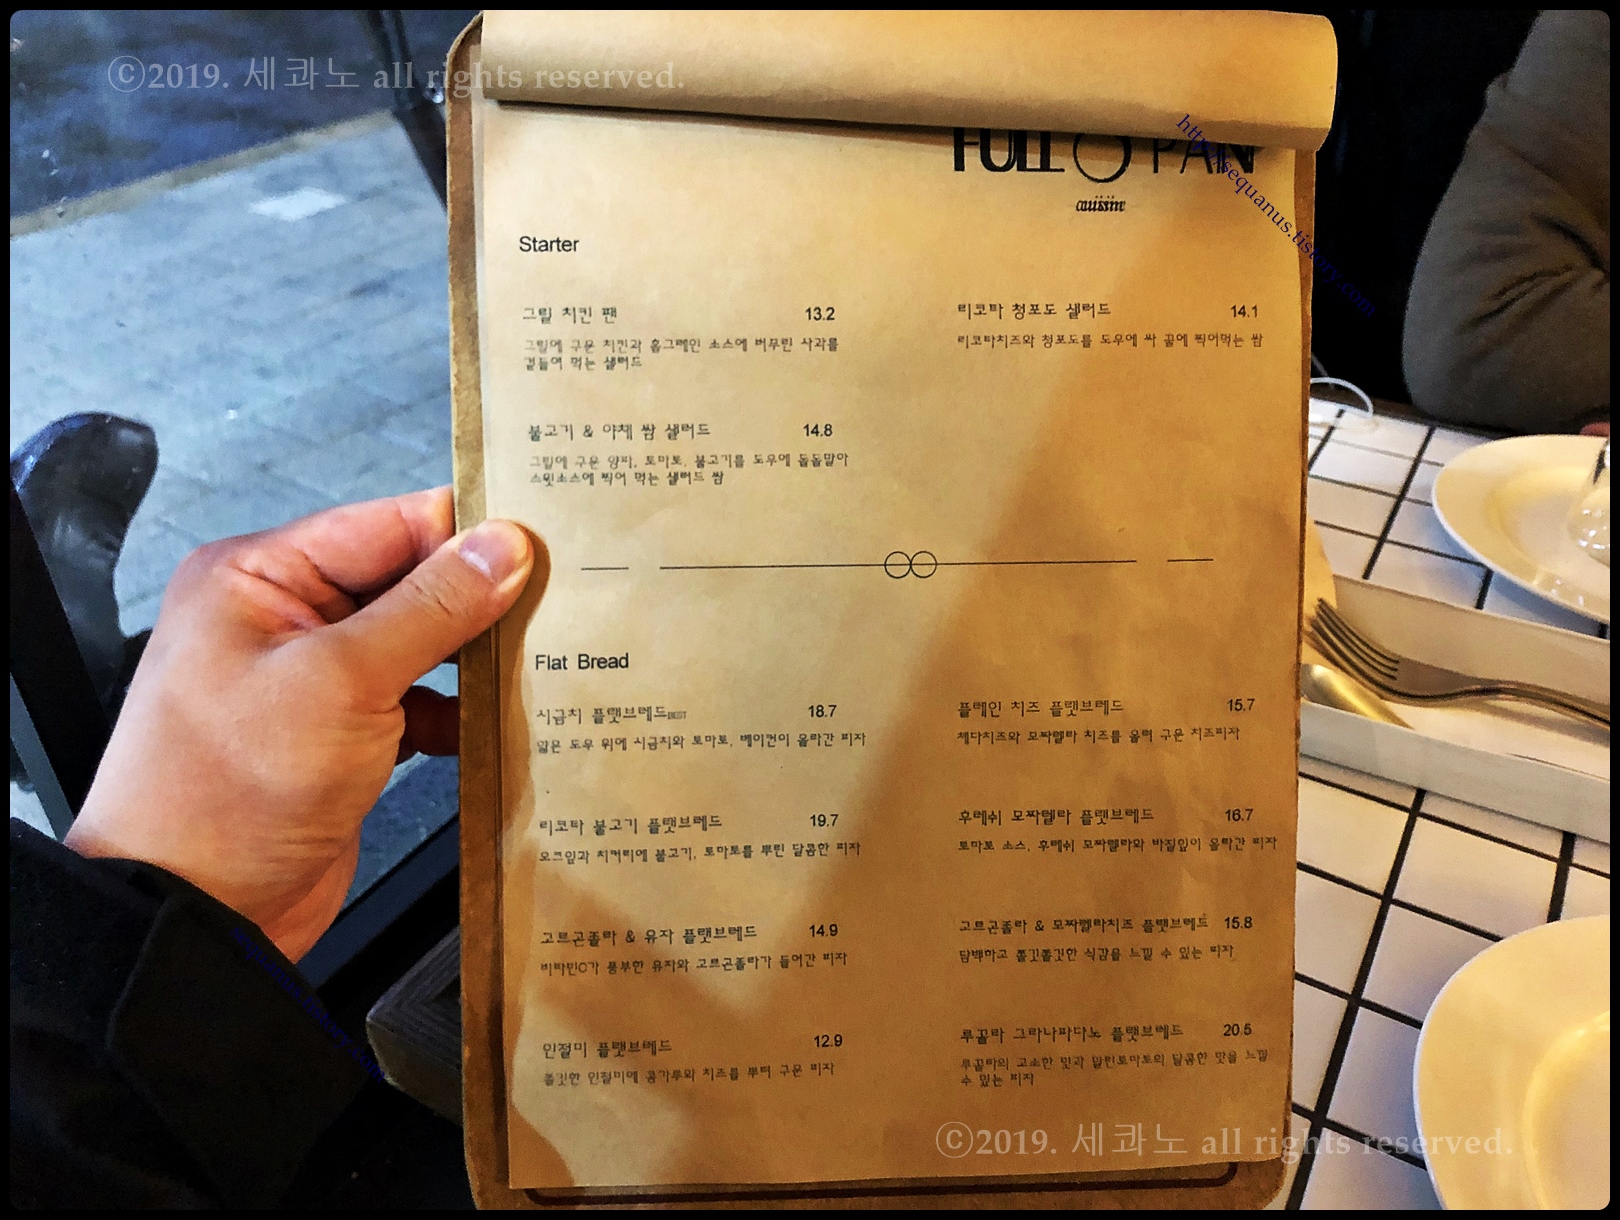 ⓒ2019. 세콰노 all rights reserved.
FULL PAN
cuisine
http://sequanus.tistory.com
Starter
그릴 치킨 팬 13.2
그릴에 구운 치킨과 홀그레인 소스에 버무린 사과를
곁들여 먹는 샐러드
리코타 청포도 샐러드 14.1
리코타치즈와 청포도를 도우에 싸 꿀에 찍어먹는 쌈
불고기 & 야채 쌈 샐러드 14.8
그릴에 구운 양파, 토마토, 불고기를 도우에 돌돌말아
스윗소스에 찍어 먹는 샐러드 쌈
Flat Bread
시금치 플랫브레드BEST 18.7
얇은 도우 위에 시금치와 토마토, 베이컨이 올라간 피자
플레인 치즈 플랫브레드 15.7
체다치즈와 모짜렐라 치즈를 올려 구운 치즈피자
리코타 불고기 플랫브레드 19.7
오크잎과 치커리에 불고기, 토마토를 뿌린 달콤한 피자
후레쉬 모짜렐라 플랫브레드 16.7
토마토 소스, 후레쉬 모짜렐라와 바질잎이 올라간 피자
고르곤졸라 & 유자 플랫브레드 14.9
비타민C가 풍부한 유자와 고르곤졸라가 들어간 피자
고르곤졸라 & 모짜렐라치즈 플랫브레드 15.8
담백하고 쫄깃쫄깃한 식감을 느낄 수 있는 피자
인절미 플랫브레드 12.9
쫄깃한 인절미에 콩가루와 치즈를 뿌려 구운 피자
루꼴라 그라나파다노 플랫브레드 20.5
루꼴라의 고소한 맛과 말린토마토의 달콤한 맛을 느낄
수 있는 피자
ⓒ2019. 세콰노 all rights reserved.